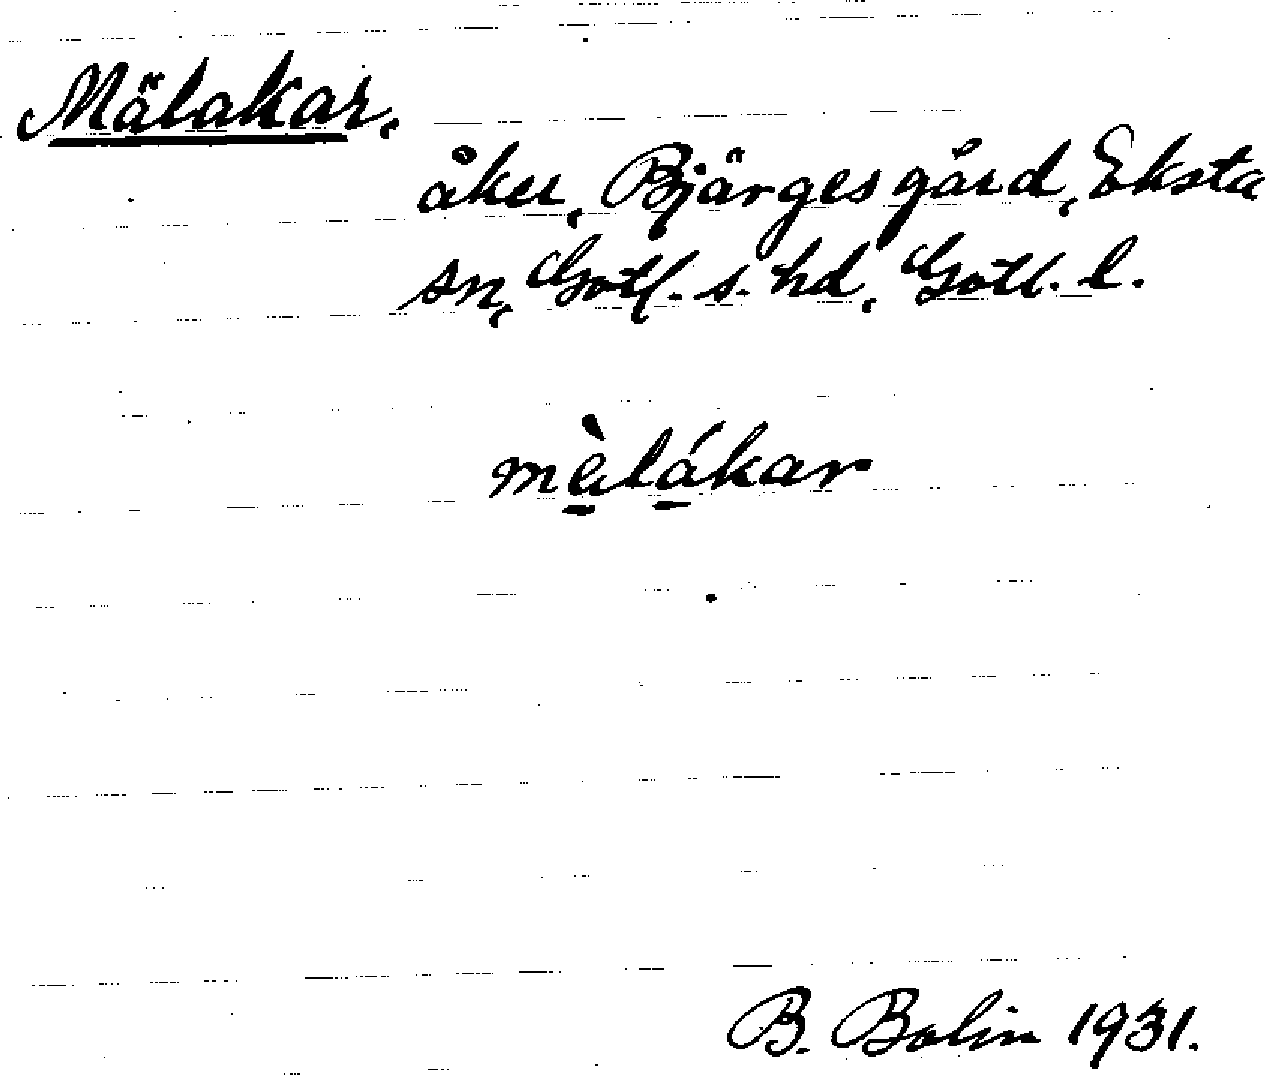 Mälakar,
åker, Bjärges gård, Eksta
sn, Gotl. s. hd, Gotl. l.
mèlákar
B. Bolin 1931.